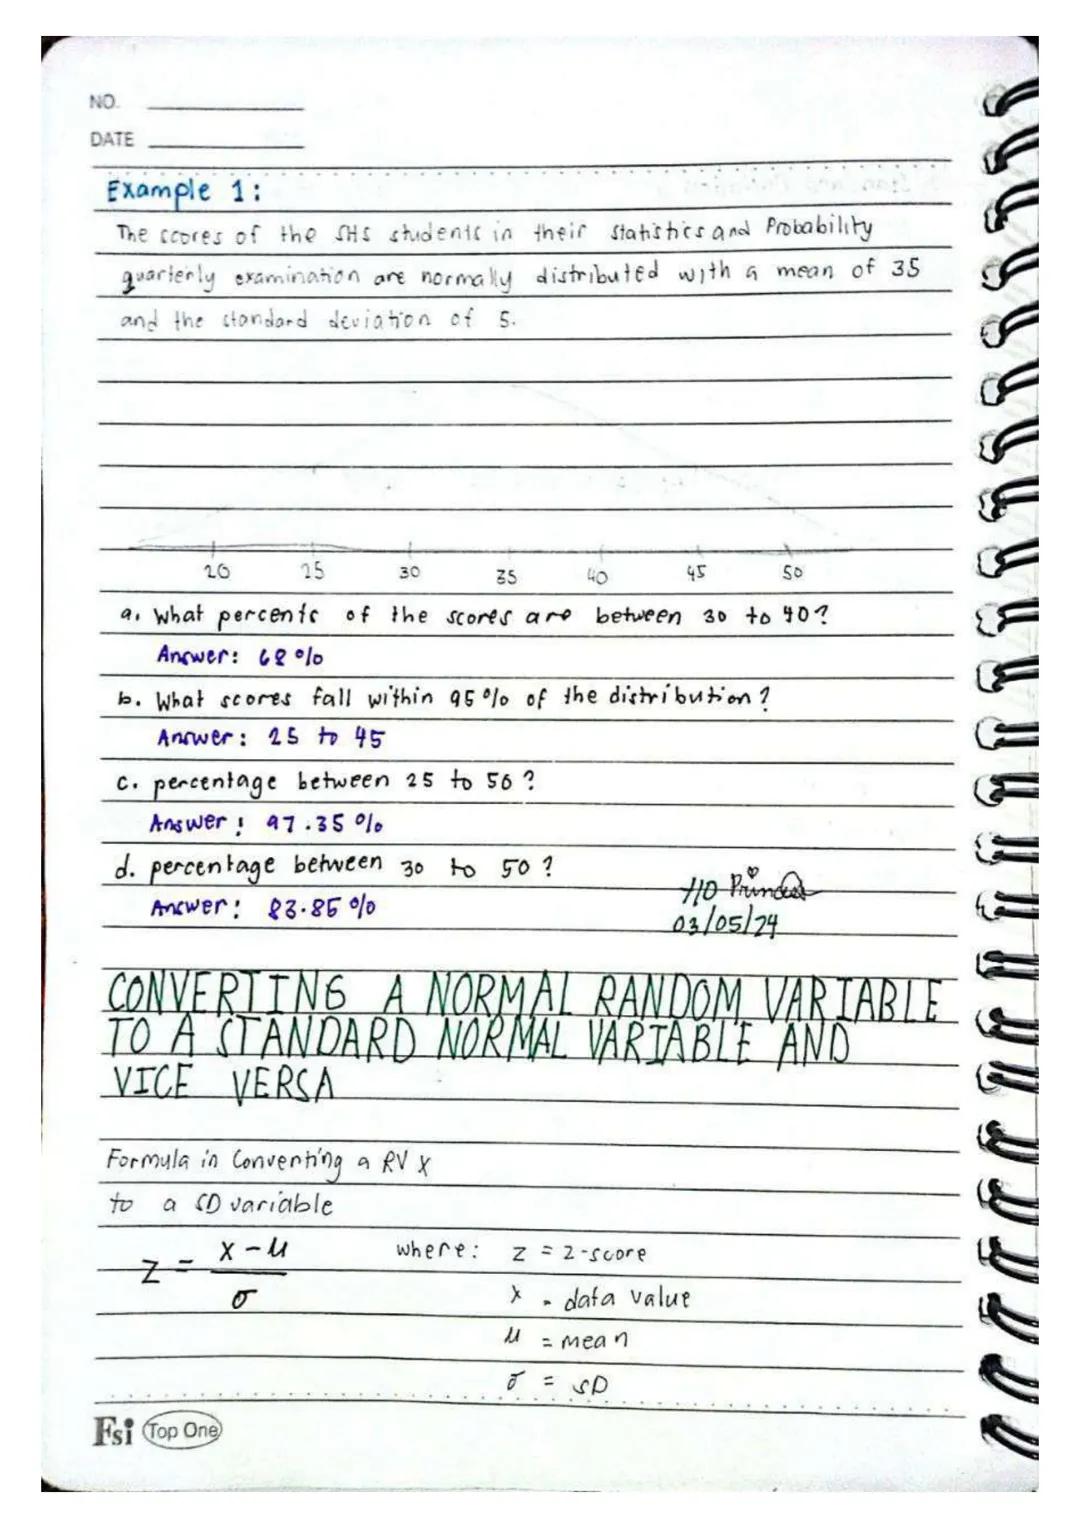 NO.
DATE
Example 1:
The scores of the SHS students in their Statistics and Probability
quarterly examination are normally distributed with a mean of 35
and the standard deviation of 5.
20 25 30 35 40 45 50
a. What percents of the scores are between 30 to 40?
Answer: 68%
b. What scores fall within 95% of the distribution?
Answer: 25 to 45
c. percentage between 25 to 50?
Answer: 97.35%
d. percentage between 30 to 50?
Answer: 83.85%
03/05/24
CONVERTING A NORMAL RANDOM VARIABLE
TO A STANDARD NORMAL VARIABLE AND
VICE VERSA
Formula in Converting a RV X
to a SD variable
Z = X - μ / σ
where: Z = z-score
X - data value
μ = mean
σ = SD
Fsi Top One